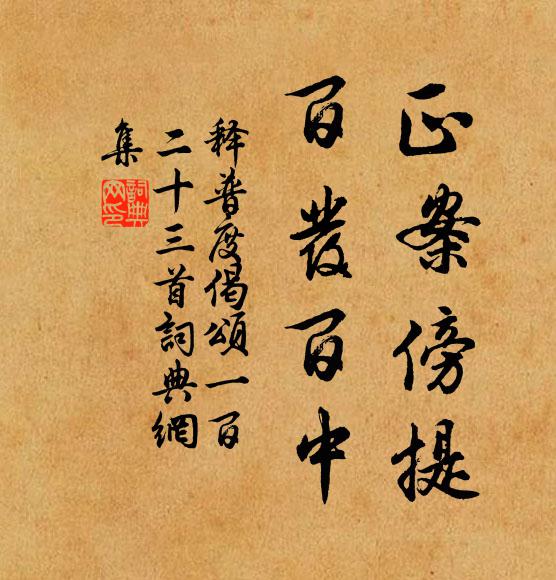 正案傍提
百發百中
釋普度偈頌一百
二十三首詞典網
集
詞典
网印